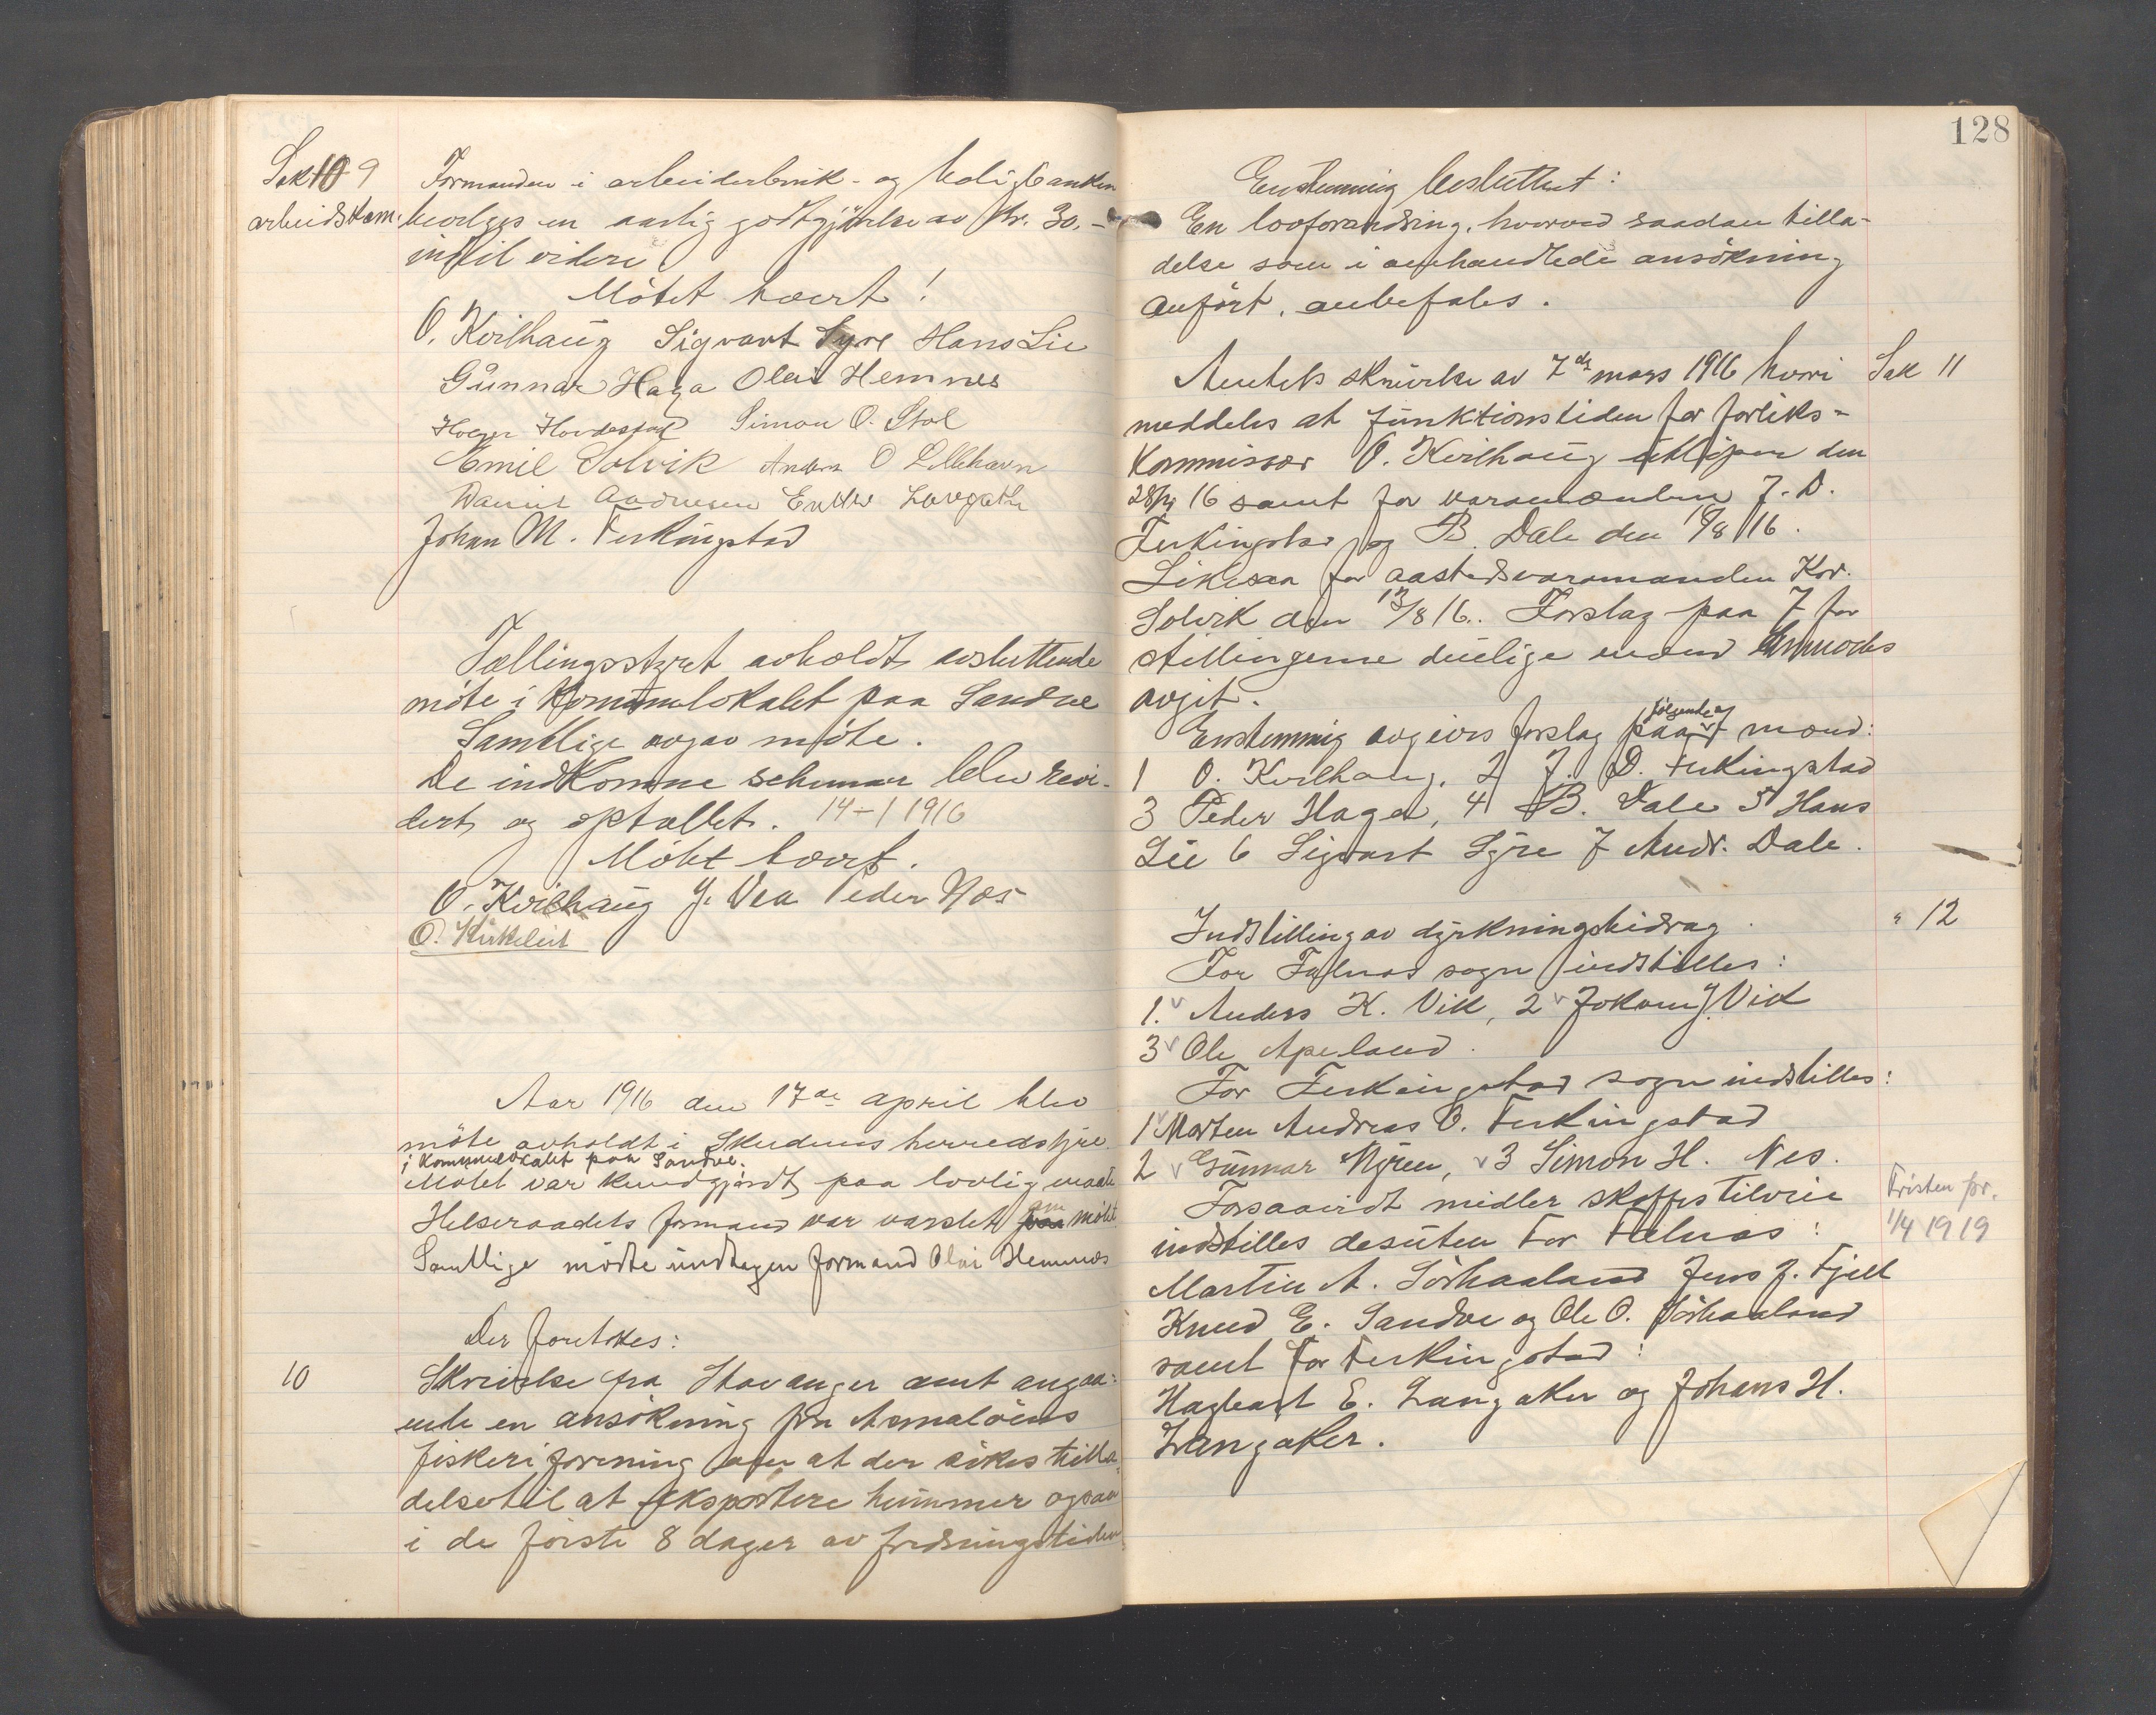 Sak 10 9
arbeidskom.
Formanden i arbeiderbruk- og boligbanken
bevilges en aarlig godtgjörelse av kr. 30.-
indtil videre
Mötet hævet!
O. Kvilhaug Sigvart Syre Hans Lie
Gunnar Haga Olai Hemnes
Holger Simon O. Stol
Emil Solvik Anders O Lillehavn
Daniel Andresen Endre Langåker
Johan M. Ferkingstad
Tællingsstyret avholdt avsluttende
möte i Kommunelokalet paa Sandve
Samtlige avgav möte.
De indkomne schemar blev revi-
dert og optallet. 14-1 1916
Mötet hævet.
O. Kvilhaug J. Vea Peder Næs
O. Kirkeleit
Aar 1916 den 17de april blev
möte avholdt i Skudenes herredstyre
i Kommunelokalet paa Sandve.
Mötet var kundgjördt paa lovlig maate
Helseraadets formand var varslet paa om mötet
Samtlige mödte undtagen formand Olai Hemnes
Der foretokes:
10
Skrivelse fra Stavanger amt angaa-
ende en ansökning fra
fiskeriforening om at der sökes tilla-
delse til at eksportere hummer ogsaa
i de förste 8 dager av fredningstiden
128
Enstemmig besluttet:
En lovforandring, hvorved saadan tilla-
delse som i omhandlede ansökning
anfört, anbefales.
Amtets skrivelse av 7de mars 1916 hvori
Sak 11
meddeles at funktionstiden for forliks-
kommissær O. Kvilhaug utlöper den
28/4 16 samt for varamændene J. D.
Ferkingstad og B. Dale den 18/8 16.
Likesaa for aastedsvaramanden Kor.
Solvik den 13/8 16. Forslag paa 7 for
stillingerne duelige mænd anmodes
avgit.
Enstemmig avgives forslag paa følgende 7 mænd:
1 O. Kvilhaug, 2 J. D. Ferkingstad
3 Peder Haga, 4 B. Dale 5 Hans
Lie 6 Sigvart Syre 7 Andr. Dale.
Indstilling av dyrkningsbidrag.
" 12
For Falnes sogn indstilles:
1. Anders K. Vik, 2 Johan J. Vik
3 Ole Apeland.
For Ferkingstad sogn indstilles:
1 Morten Andreas O. Ferkingstad
2 Gunnar Myren, 3 Simon H. Nes.
Forsaavidt midler skaffes tilveie
Fristen for.
1/4 1919
indstilles desuten for Falnes:
Martin A. Sörhaaland Jens J. Fjell
Knud E. Sandve og Ole O. Sörhaaland
samt for Ferkingstad:
Hagbart E. Langaker og Johans H.
Langaker.